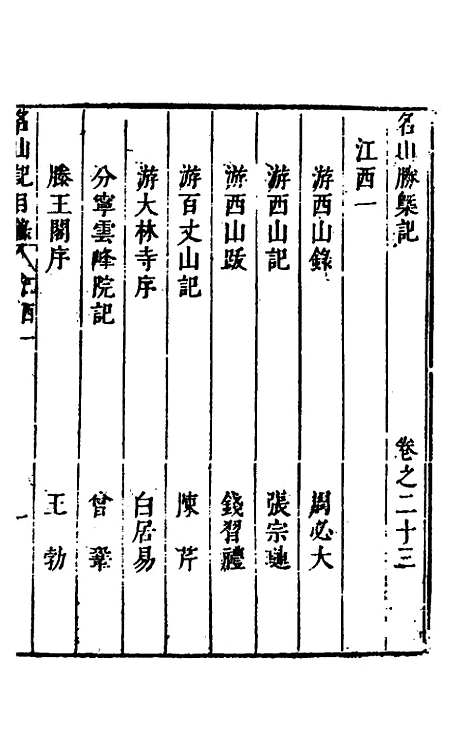 名山勝槩記 卷之二十三
江西一
游西山錄 周必大
游西山記 張宗璉
游西山跋 錢習禮
游百丈山記 陳芹
游大林寺序 白居易
分寧雲峰院記 曾鞏
滕王閣序 王勃
名山記目錄 江西一 一